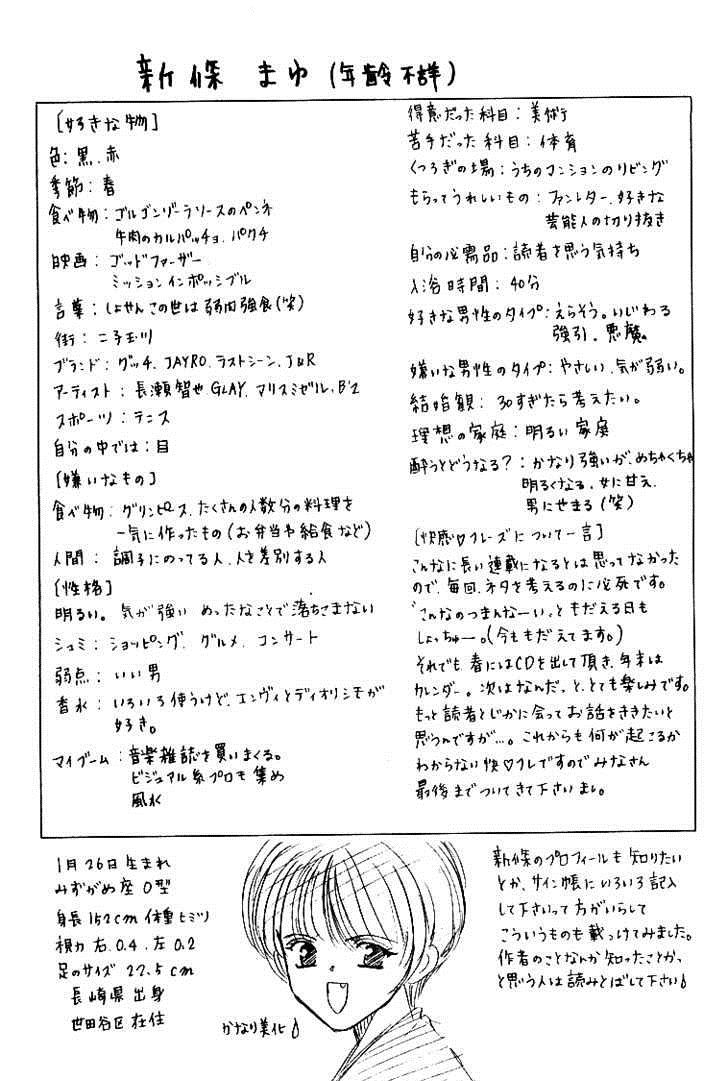 新條 まゆ (年齢不詳)
[好きな物]
色：黒、赤
季節：春
食べ物：ゴルゴンゾーラソースのペンネ
牛肉のカルパッチョ、パクチ
映画：ゴッドファーザー
ミッションインポッシブル
言葉：しょせんこの世は弱肉強食(笑)
街：二子玉川
ブランド：グッチ、JAYRO、ラストシーン、J&R
アーティスト：長瀬智也、GLAY、マリスミゼル、B'z
スポーツ：テニス
自分の中では：目
[嫌いなもの]
食べ物：グリンピース、たくさんの人数分の料理を
一気に作ったもの(お弁当や給食など)
人間：調子にのってる人、人を差別する人
[性格]
明るい。気が強い めったなことで落ちこまない
シュミ：ショッピング、グルメ、コンサート
弱点：いい男
香水：いろいろ使うけど、エンヴィとディオリシモが
好き。
マイブーム：音楽雑誌を買いまくる。
ビジュアル系プロモ集め
風水
得意だった科目：美術
苦手だった科目：体育
くつろぎの場：うちのマンションのリビング
もらってうれしいもの：ファンレター、好きな
芸能人の切り抜き
自分の必需品：読者を思う気持ち
入浴時間：40分
好きな男性のタイプ：えらそう。いじわる
強引。悪魔。
嫌いな男性のタイプ：やさしい、気が弱い。
結婚観：30すぎたら考えたい。
理想の家庭：明るい家庭
酔うとどうなる？：かなり強いが、めちゃくちゃ
明るくなる。女に甘え、
男にせまる(笑)
[快感♡フレーズについて一言]
こんなに長い連載になるとは思ってなかった
ので、毎回、ネタを考えるのに必死です。
"こんなのつまんなーい"ともだえる日も
しょっちゅー。(今ももだえてます。)
それでも春にはCDを出して頂き、年末は
カレンダー。次はなんだっと、とても楽しみです。
もっと読者とじかに会ってお話をききたいと
思うんですが…。これからも何が起こるか
わからない快♡フレですのでみなさん
最後までついてきて下さいませ。
1月26日生まれ
みずがめ座 O型
身長152cm 体重ヒミツ
視力 右、0.4、左0.2
足のサイズ 22.5cm
長崎県出身
世田谷区在住
かなり美化♪
新條のプロフィールも知りたい
とか、サイン帳にいろいろ記入
して下さいって方がいらして
こういうものも載っけてみました。
作者のことなんか知ったことかっ
と思う人は読みとばして下さい♪